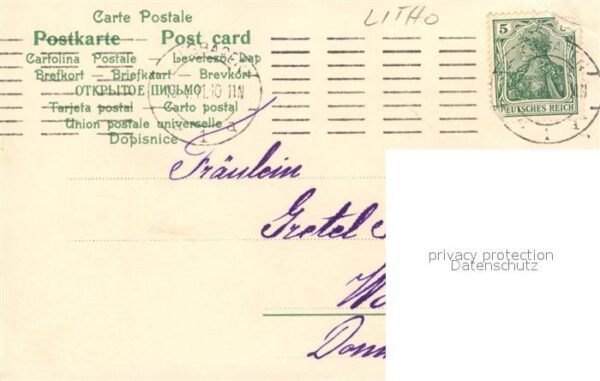 Carte Postale
Postkarte – Post card
Cartolina Postale – Levelező-Lap
Brefkort – Briefkaart – Brevkort
ОТКРЫТОЕ ПИСЬМО
Tarjeta postal – Carto postal
Union postale universelle
Dopisnice
LITHO
5 5
DEUTSCHES REICH
Fräulein
Gretel
privacy protection
Datenschutz